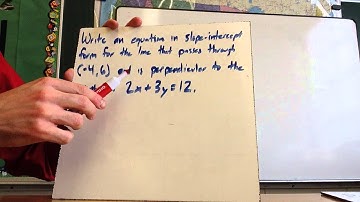 Write an equation in slope-intercept
form for the line that passes through
(-4,6) and is perpendicular to the
2x + 3y = 12.